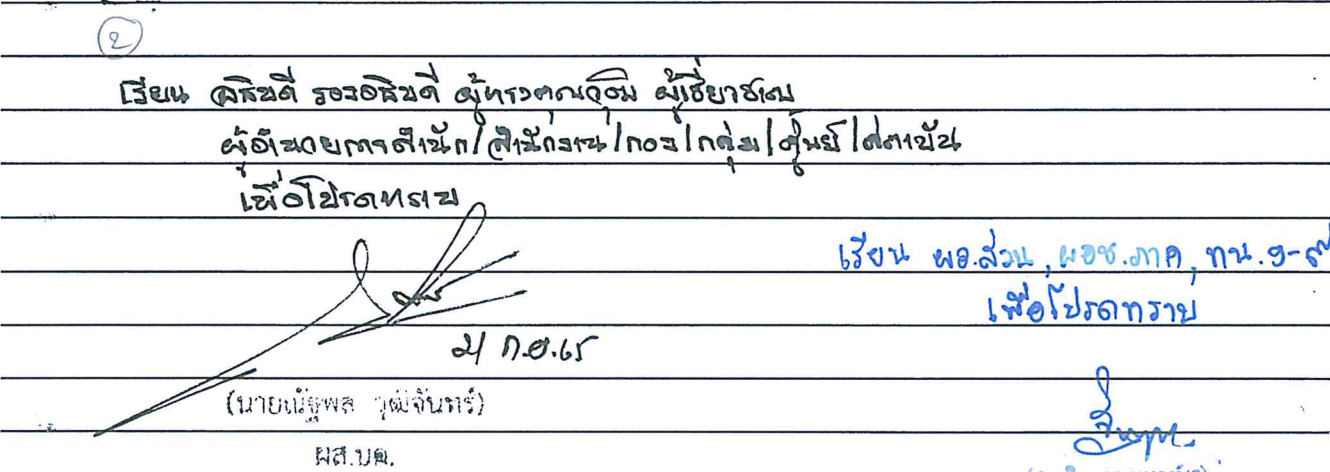 ๒
เรียน อธิบดี รองอธิบดี ผู้ทรงคุณวุฒิ ผู้เชี่ยวชาญ
ผู้อำนวยการสำนัก/สำนักงาน/กอง/กลุ่ม/ศูนย์/สถาบัน
เพื่อโปรดทราบ
ก.ย.65
(นายณัฐพล วุฒิจันทร์)
ผส.บค.
เรียน ผอ.ส่วน, ผอช.ภาค, ทน.๑-๙
เพื่อโปรดทราบ